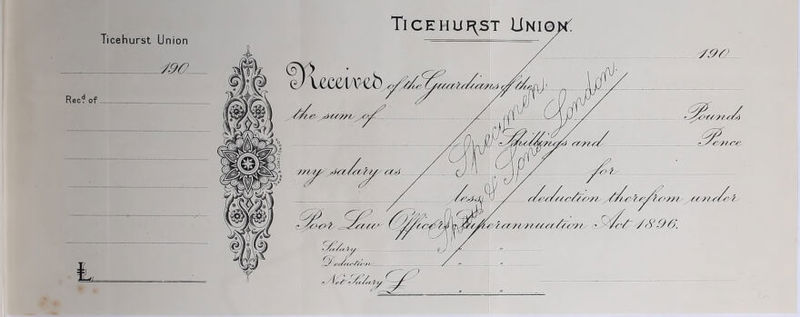 Ticehurst Union
190
Rec.d of
£
TICEHURST UNION.
190
Received of the Guardians of the
the sum of Pounds
Shillings and Pence
my salary as for
less deduction therefrom under
Poor Law Officers Superannuation Act 1896.
Salary " "
Deduction " "
Net Salary £ " "
Specimen
London